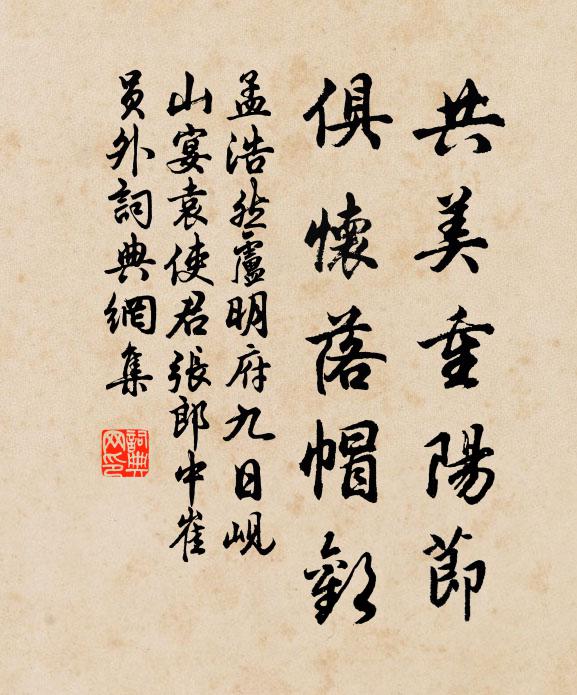 共美重陽節
俱懷落帽歡
孟浩然盧明府九日峴
山宴袁使君張郎中崔
員外詞典網集
詞典
网印